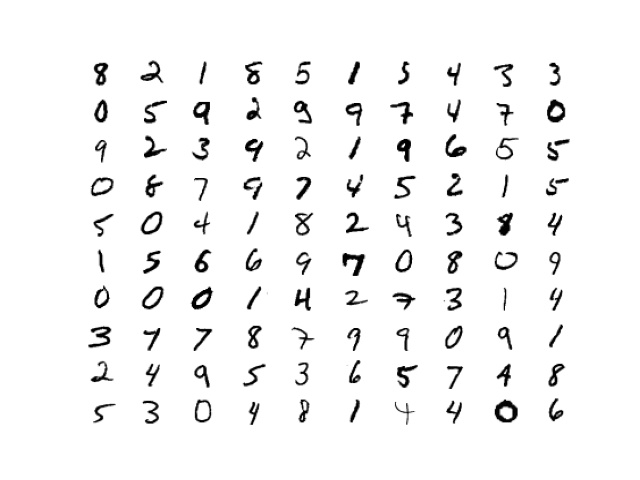 8 2 1 8 5 1 5 4 3 3
0 5 9 2 9 9 7 4 7 0
9 2 3 9 2 1 9 6 5 5
0 8 7 9 7 4 5 2 1 5
5 0 4 1 8 2 4 3 8 4
1 5 6 6 9 7 0 8 0 9
0 0 0 1 4 2 7 3 1 4
3 7 7 8 7 9 9 0 9 1
2 4 9 5 3 6 5 7 4 8
5 3 0 4 8 1 4 4 0 6